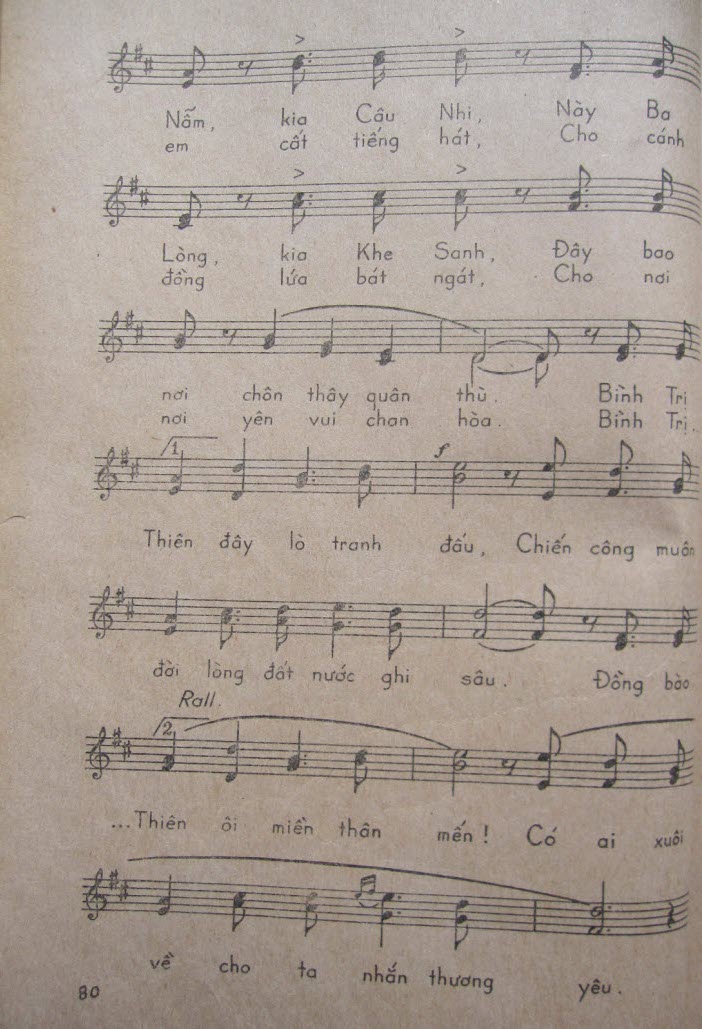 Nẫm, kia Câu Nhi, Này Ba
em cất tiếng hát, Cho cánh
Lòng, kia Khe Sanh, Đây bao
đồng lúa bát ngát, Cho nơi
nơi chôn thây quân thù. Bình Trị
nơi yên vui chan hòa. Bình Trị..
1
f
Thiên đây lò tranh đấu, Chiến công muôn
đời lòng đất nước ghi sâu. Đồng bào
Rall.
2
...Thiên ôi miền thân mến! Có ai xuôi
về cho ta nhắn thương yêu.
80